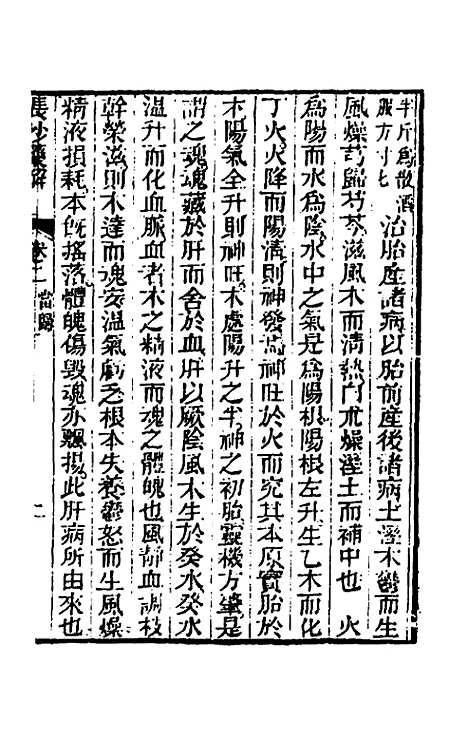 半斤爲散酒
服方寸匕
治胎產諸病以胎前產後諸病土溼木鬱而生
風燥芎歸芍芩滋風木而清熱朮燥溼土而補中也　火
爲陽而水爲陰水中之氣是爲陽根陽根左升生乙木而化
丁火火降而陽清則神發焉神旺於火而究其本原實胎於
木陽氣全升則神旺木處陽升之半神之初胎靈機方肇是
謂之魂魂藏於肝而舍於血肝以厥陰風木生於癸水癸水
溫升而化血脈血者木之精液而魂之體魄也風靜血調枝
幹榮滋則木達而魂安溫氣虧乏根本失養鬱怒而生風燥
精液損耗本既搖落體魄傷毀魂亦飄揚此肝病所由來也
長沙藥解　卷二　當歸　二